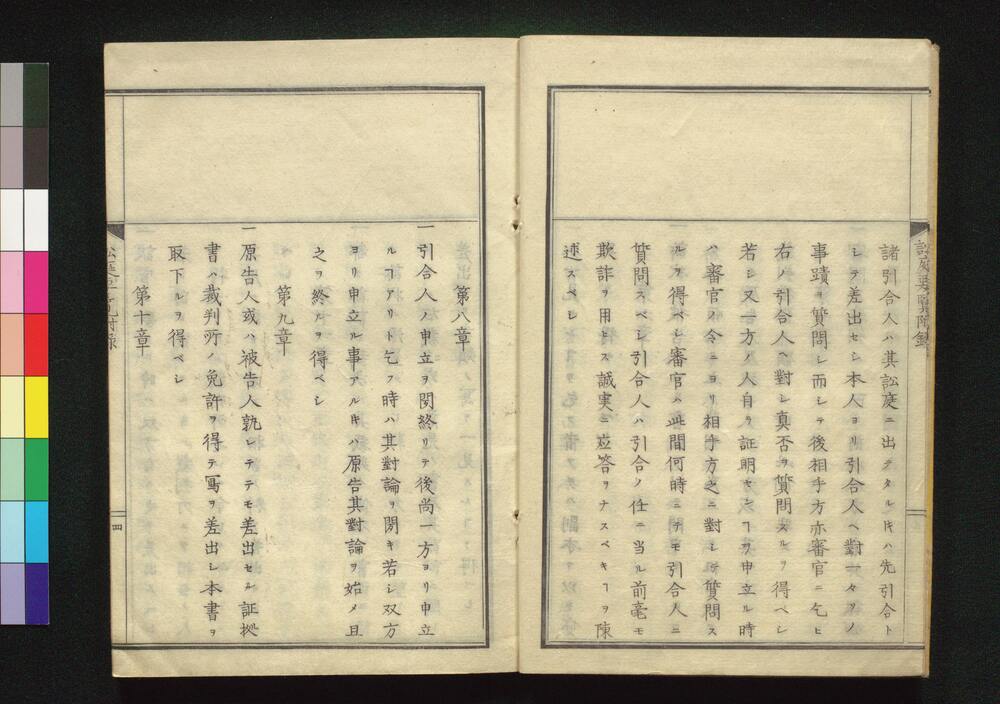 諸引合人ハ其訟庭ニ出テタル𪜈ハ先引合ト
シテ差出セシ本人ヨリ引合人ヘ對一々ソノ
事蹟ヲ質問レ而シテ後相手方亦審官ニ乞ヒ
右ノ引合人ヘ對シ真否ヲ質問スルヲ得ベシ
若シ又一方ノ人自ラ証明セシヿヲ申立ル時
ハ審官ノ令ニヨリ相手方之ニ對シテ質問ス
ルヲ得ベシ審官ハ此間何時ニテモ引合人ニ
質問スベシ引合人ハ引合ノ任ニ当ル前毫モ
欺詐ヲ用セス誠実ニ應答ヲナスベキヿヲ陳
述スベシ
第八章
一引合人ノ申立ヲ閲終リテ後尚一方ヨリ申立
ルヿアリト乞フ時ハ其對論ヲ聞キ若シ双方
ヨリ申立ル事アル𪜈ハ原告其對論ヲ始メ且
之ヲ終ルヲ得ベシ
第九章
一原告人或ハ被告人孰レテテモ差出セル証拠
書ハ裁判所ノ免許ヲ得テ寫ヲ差出シ本書ヲ
取下レヲ得ベシ
第十章
四